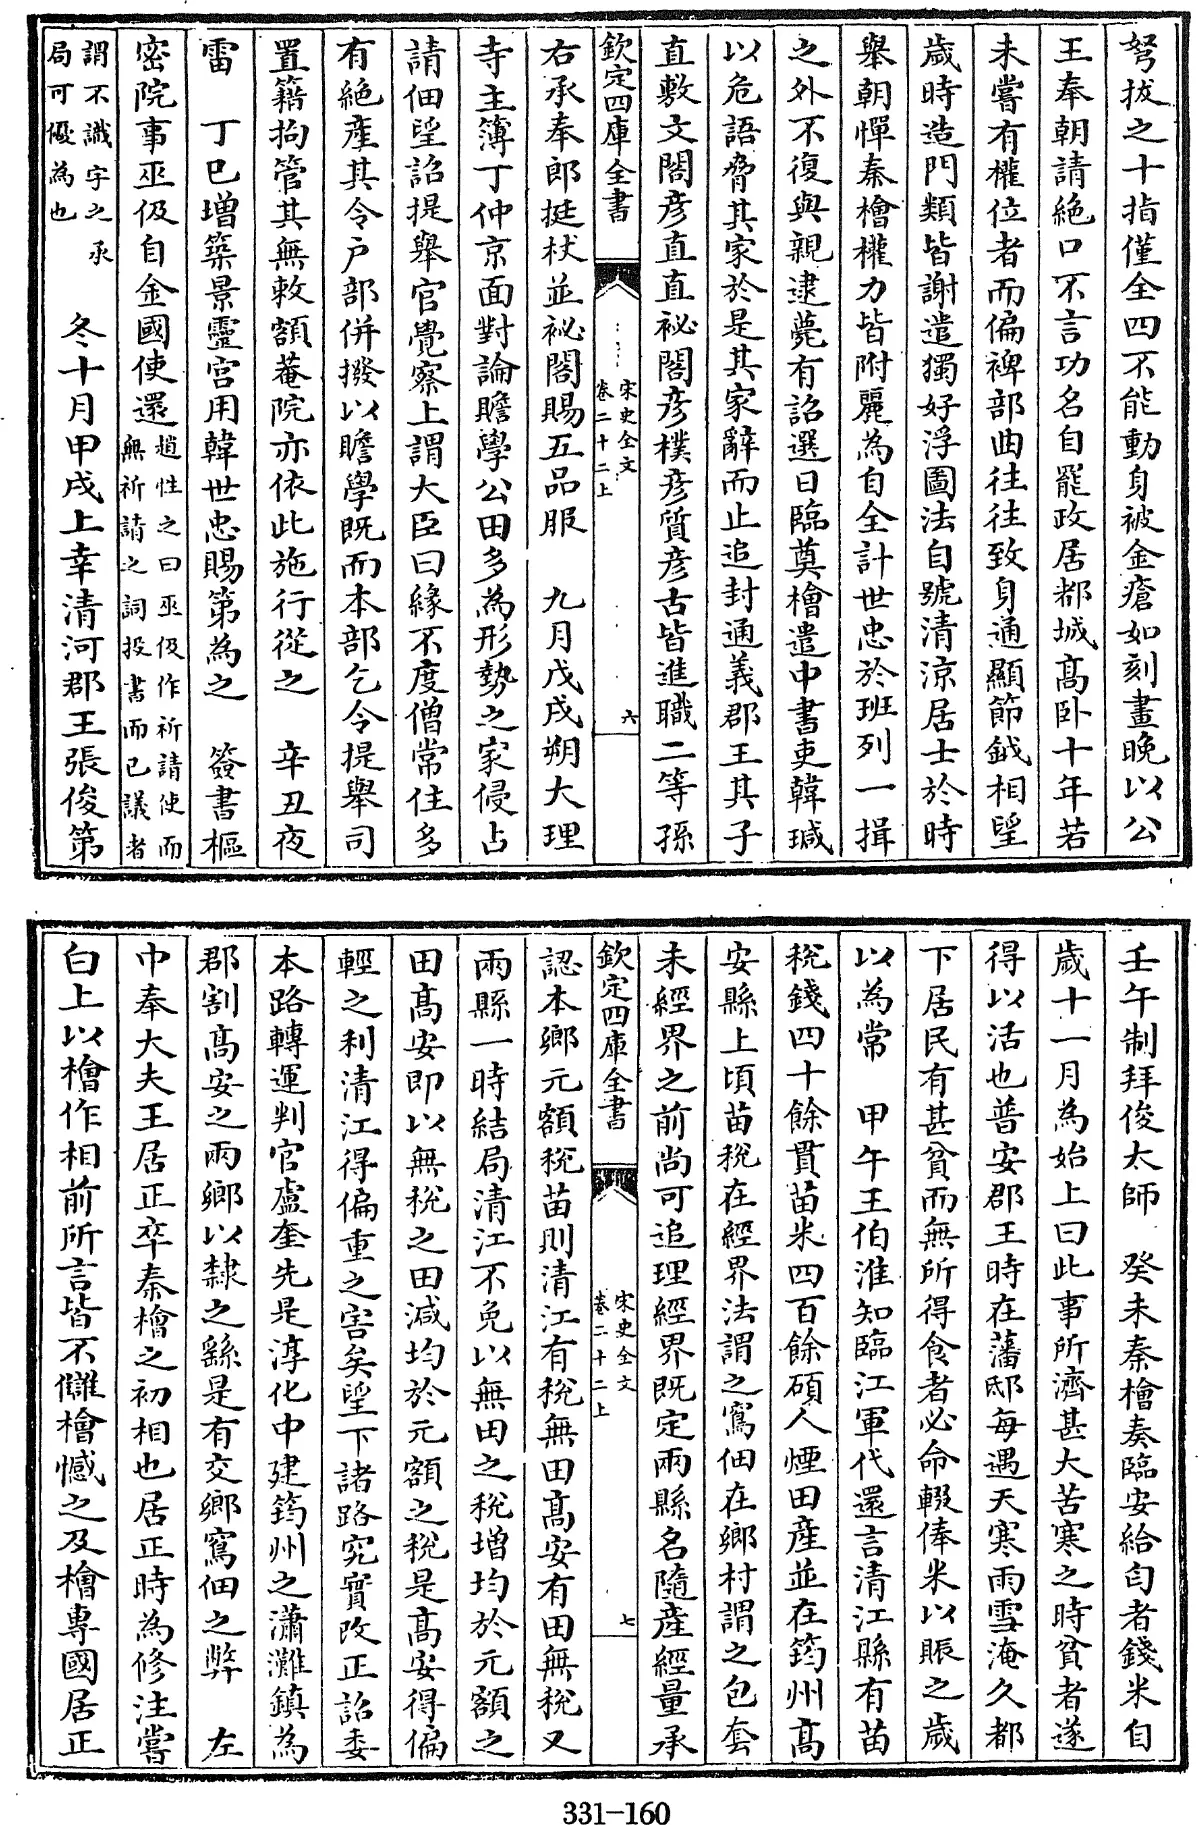 弩拔之十指僅全四不能動身被金瘡如刻畫晚以公
王奉朝請絶口不言功名自罷政居都城髙卧十年若
未嘗有權位者而偏裨部曲往往致身通顯節鉞相望
歲時造門類皆謝遣獨好浮圖法自號清涼居士於時
舉朝憚秦檜權力皆附麗為自全計世忠於班列一揖
之外不復與親逮薨有詔選日臨奠檜遣中書吏韓瑊
以危語脅其家於是其家辭而止追封通義郡王其子
直敷文閣彦直直祕閣彦樸彦質彦古皆進職二等孫
欽定四庫全書
宋史全文
卷二十二上
六
右承奉郎挺杕並祕閣賜五品服　九月戊戌朔大理
寺主簿丁仲京面對論贍學公田多為形勢之家侵占
請佃望詔提舉官覺察上謂大臣曰緣不度僧常住多
有絶產其令户部併撥以贍學既而本部乞令提舉司
置籍拘管其無敕額菴院亦依此施行從之　辛丑夜
雷　丁巳増築景靈宫用韓世忠賜第為之　簽書樞
密院事巫伋自金國使還趙性之曰巫伋作祈請使而
無祈請之詞投書而已議者
謂不識字之承
局可優為也
冬十月甲戌上幸清河郡王張俊第
壬午制拜俊太師　癸未秦檜奏臨安給匄者錢米自
歲十一月為始上曰此事所濟甚大苦寒之時貧者遂
得以活也普安郡王時在藩邸每遇天寒雨雪淹久都
下居民有甚貧而無所得食者必命輟俸米以賑之歲
以為常　甲午王伯淮知臨江軍代還言清江縣有苗
税錢四十餘貫苗米四百餘碩人煙田產並在筠州髙
安縣上頃苗税在經界法謂之寫佃在鄉村謂之包套
未經界之前尚可追理經界既定兩縣名隨產經量承
欽定四庫全書
宋史全文
卷二十二上
七
認本鄉元額税苗則清江有税無田髙安有田無税又
兩縣一時結局清江不免以無田之税増均於元額之
田髙安即以無税之田減均於元額之税是髙安得偏
輕之利清江得偏重之害矣望下諸路究實改正詔委
本路轉運判官盧奎先是淳化中建筠州之瀟灘鎮為
郡割髙安之兩鄉以隸之繇是有交鄉寫佃之弊　左
中奉大夫王居正卒秦檜之初相也居正時為修注嘗
白上以檜作相前所言皆不讎檜憾之及檜專國居正
331-160